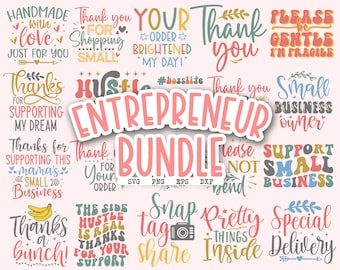 HANDMADE
with
Love
JUST FOR YOU
Thank
you
FOR
Shopping
SMALL
YOUR
ORDER
BRIGHTENED
MY DAY!
Thank
you
PLEASE
BE
GENTLE
I'M FRAGILE
Thanks
FOR
SUPPORTING
MY DREAM
HUSTLE
#bosslife
Thank you
Small
BUSINESS
owner
ENTREPRENEUR
BUNDLE
SVG PNG EPS DXF
Thanks for
SUPPORTING THIS
mamas
SMALL
Business
Thank
for
your
Order
Please
NOT
bend
SUPPORT
SMALL
BUSINESS
Thanks
a bunch!
THE SIDE
HUSTLE
IS REAL
THANKS
FOR YOUR
SUPPORT
Snap
tag
share
Pretty
THINGS
Inside
Special
Delivery